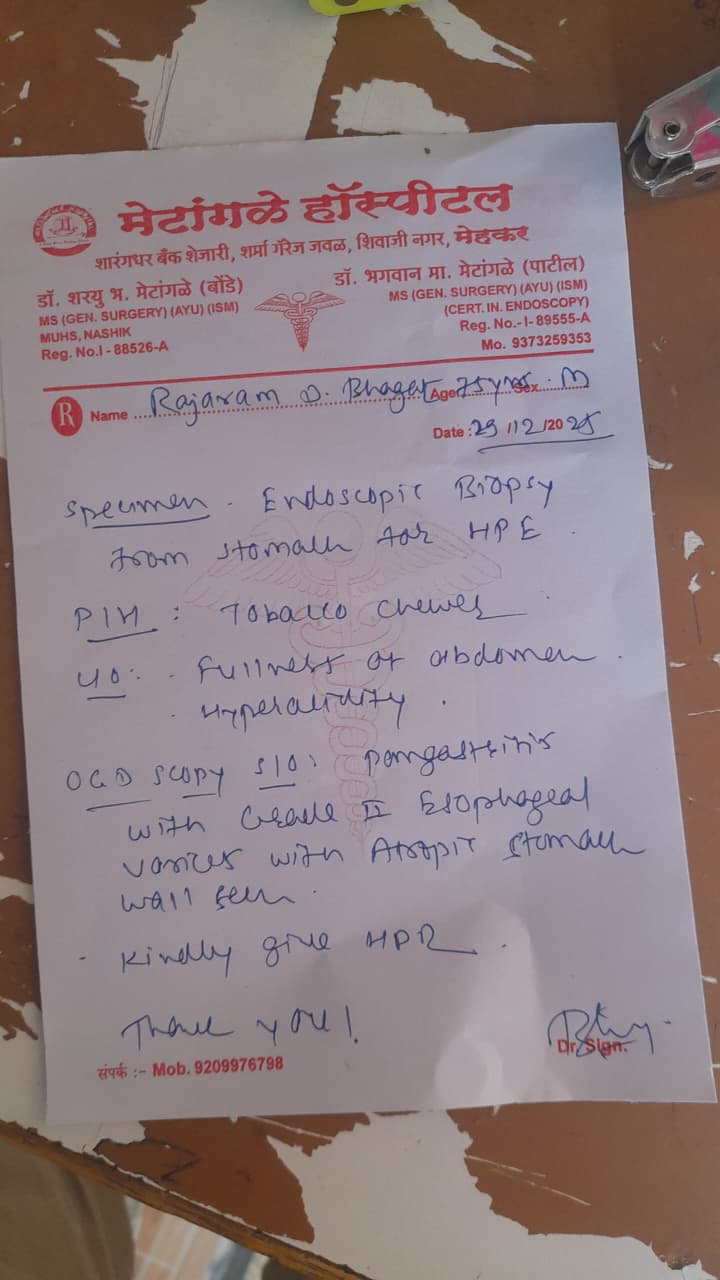 मेटांगळे हॉस्पीटल
शारंगधर बँक शेजारी, शर्मा गॅरेज जवळ, शिवाजी नगर, मेहकर
डॉ. शरयु भ. मेटांगळे (बोंडे)
MS (GEN. SURGERY) (AYU) (ISM)
MUHS, NASHIK
Reg. No.I - 88526-A
डॉ. भगवान मा. मेटांगळे (पाटील)
MS (GEN. SURGERY) (AYU) (ISM)
(CERT. IN. ENDOSCOPY)
Reg. No.-I- 89555-A
Mo. 9373259353
R Name Rajaram D. Bhagat Age 75 yrs Sex M
Date : 29/12/2025
Specimen - Endoscopic Biopsy
from stomach for HPE.
P/H : Tobacco chewer
c/o : . Fullness of abdomen.
. Hyperacidity.
OGD scopy s/o : Pangastritis
with Grade II Esophageal
varices with Atropic stomach
wall seen.
- Kindly give HPR.
Thank you!
Dr. Sign.
संपर्क :- Mob. 9209976798